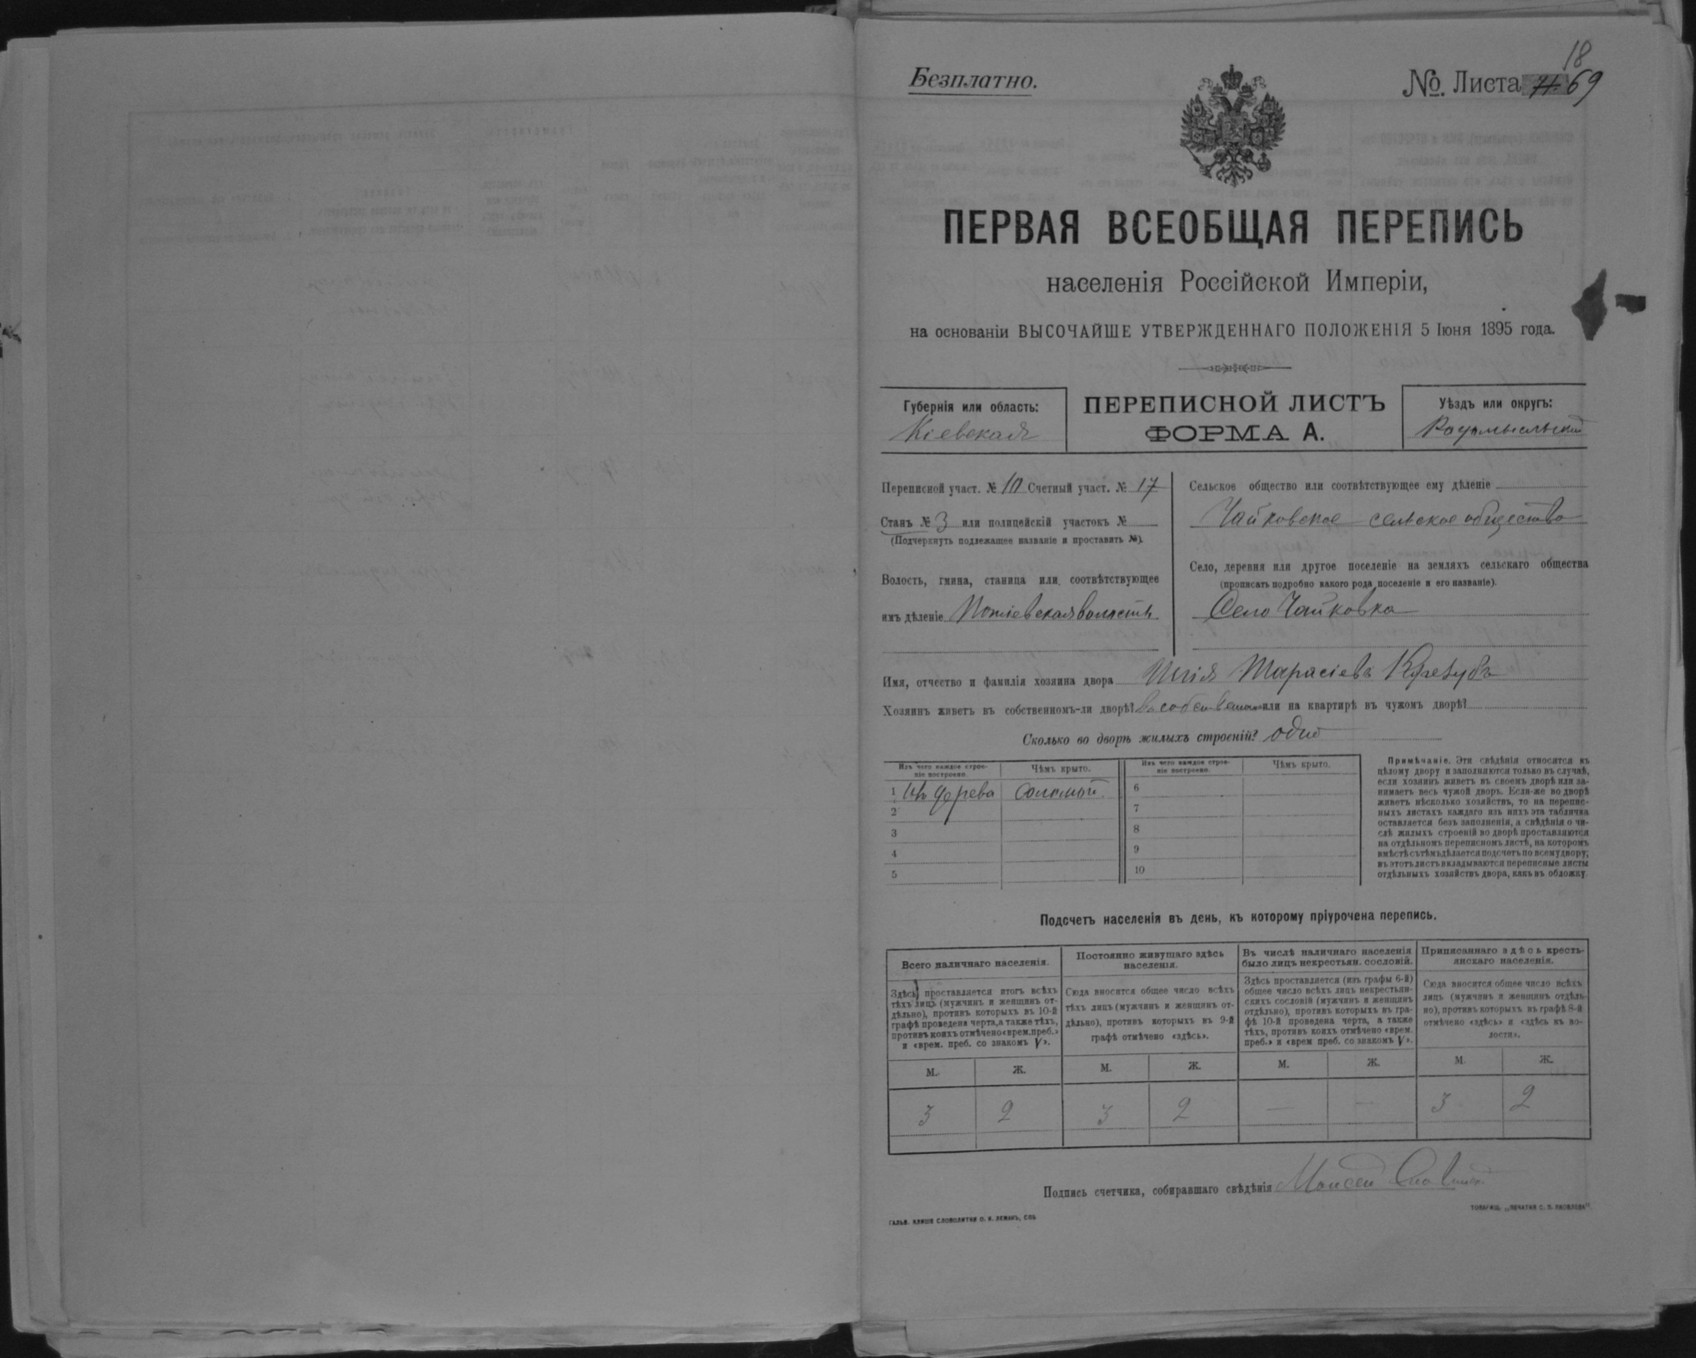 18
Безплатно.
№ Листа 69
ПЕРВАЯ ВСЕОБЩАЯ ПЕРЕПИСЬ
населенія Россійской Имперіи,
на основаніи ВЫСОЧАЙШЕ УТВЕРЖДЕННАГО ПОЛОЖЕНІЯ 5 Іюня 1895 года.
Губернія или область:
Кіевская
ПЕРЕПИСНОЙ ЛИСТЪ
ФОРМА А.
Уѣздъ или округъ:
Радомысльскій
Переписной участ. № 10 Счетный участ. № 17
Станъ № 3 или полицейскій участокъ №
(Подчеркнуть подлежащее названіе и проставить №).
Волость, гмина, станица или соотвѣтствующее
имъ дѣленіе Потіевская волость
Сельское общество или соотвѣтствующее ему дѣленіе
Чайковское сельское общество
Село, деревня или другое поселеніе на земляхъ сельскаго общества
(прописать подробно какого рода поселеніе и его названіе).
Село Чайковка
Имя, отчество и фамилія хозяина двора Тарасіевъ
Хозяинъ живетъ въ собственномъ-ли дворѣ? или на квартирѣ въ чужомъ дворѣ?
Сколько во дворѣ жилыхъ строеній? одно
Изъ чего каждое строе-
ніе построено.
Чѣмъ крыто.
Изъ чего каждое строе-
ніе построено.
Чѣмъ крыто.
1 Изъ дерева соломой
2
3
4
5
6
7
8
9
10
Примѣчаніе. Эти свѣдѣнія относятся къ
цѣлому двору и заполняются только въ случаѣ,
если хозяинъ живетъ въ своемъ дворѣ или за-
нимаетъ весь чужой дворъ. Если-же во дворѣ
живетъ нѣсколько хозяйствъ, то на перепис-
ныхъ листахъ каждаго изъ нихъ эта табличка
оставляется безъ заполненія, а свѣдѣнія о чи-
слѣ жилыхъ строеній во дворѣ проставляются
на отдѣльномъ переписномъ листѣ, на которомъ
вмѣстѣ съ тѣмъ дѣлается подсчетъ по всему двору;
въ этотъ листъ вкладываются переписные листы
отдѣльныхъ хозяйствъ двора, какъ въ обложку.
Подсчетъ населенія въ день, къ которому пріурочена перепись.
Всего наличнаго населенія.
Здѣсь проставляется итогъ всѣхъ
тѣхъ лицъ (мужчинъ и женщинъ от-
дѣльно), противъ которыхъ въ 10-й
графѣ проведена черта, а также тѣхъ,
противъ коихъ отмѣчено «врем. преб.»
и «врем. преб. со знакомъ V».
Постоянно живущаго здѣсь
населенія.
Сюда вносится общее число всѣхъ
тѣхъ лицъ (мужчинъ и женщинъ от-
дѣльно), противъ которыхъ въ 9-й
графѣ отмѣчено «здѣсь».
Въ числѣ наличнаго населенія
было лицъ некрестьян. сословій.
Здѣсь проставляется (изъ графы 6-й)
общее число всѣхъ лицъ некрестьян-
скихъ сословій (мужчинъ и женщинъ
отдѣльно), противъ которыхъ въ гра-
фѣ 10-й проведена черта, а также
тѣхъ, противъ коихъ отмѣчено «врем.
преб.» и «врем. преб. со знакомъ V».
Приписаннаго здѣсь кресть-
янскаго населенія.
Сюда вносится общее число всѣхъ
лицъ (мужчинъ и женщинъ отдѣль-
но), противъ которыхъ въ графѣ 8-й
отмѣчено «здѣсь» и «здѣсь въ во-
лости».
М. Ж. М. Ж. М. Ж. М. Ж.
3 2 3 2 — — 3 2
Подпись счетчика, собиравшаго свѣдѣнія Моисей
ГАЛЬВ. КЛИШЕ СЛОВОЛИТНИ О. И. ЛЕМАНЪ, СПБ
ТОВАРИЩ. „ПЕЧАТНЯ С. П. ЯКОВЛЕВА“.